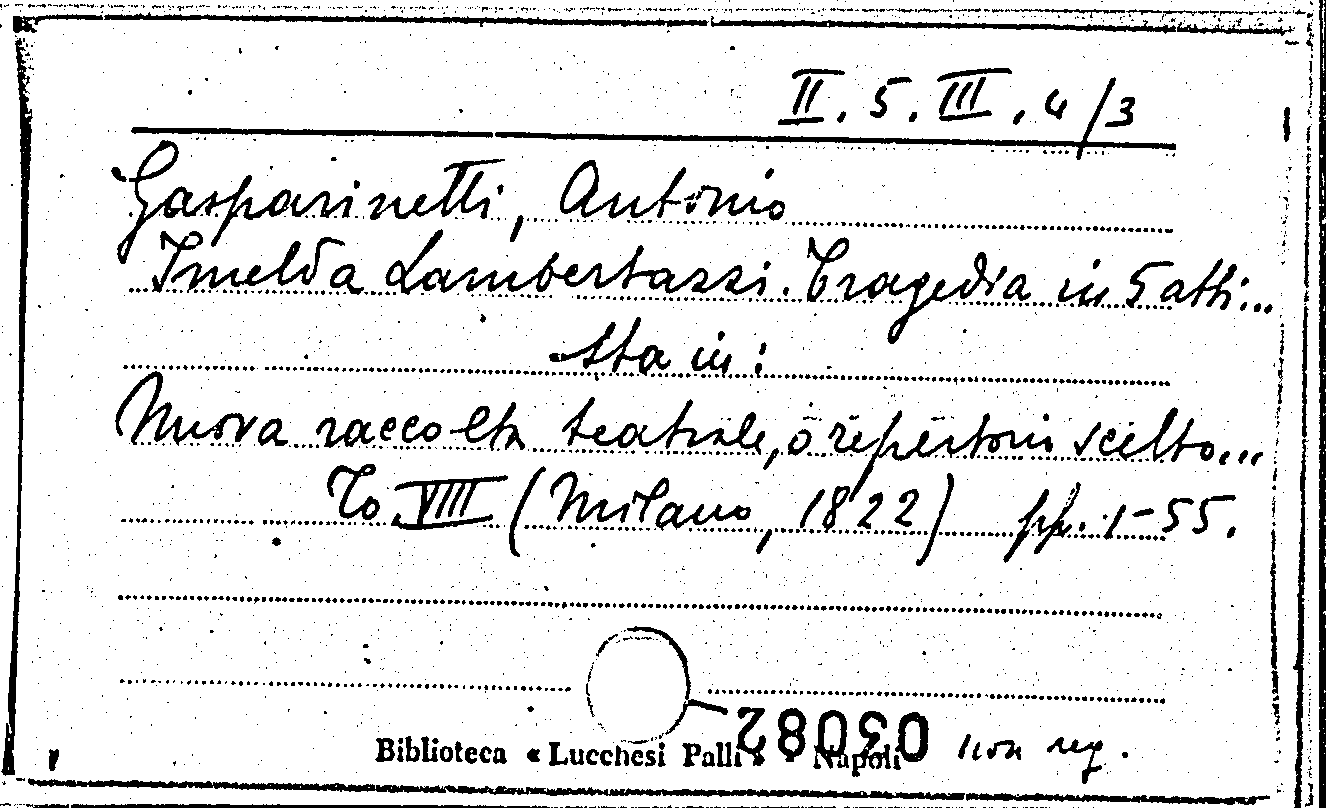 II. 5. III. 4/3
Gasparinetti, Antonio
Imelda Lambertazzi. Tragedia in 5 atti...
Sta in:
Nuova raccolta teatrale, o repertorio scelto...
To. VIII (Milano, 1822) pp. 1-55.
03082 non reg.
Biblioteca « Lucchesi Palli » - Napoli